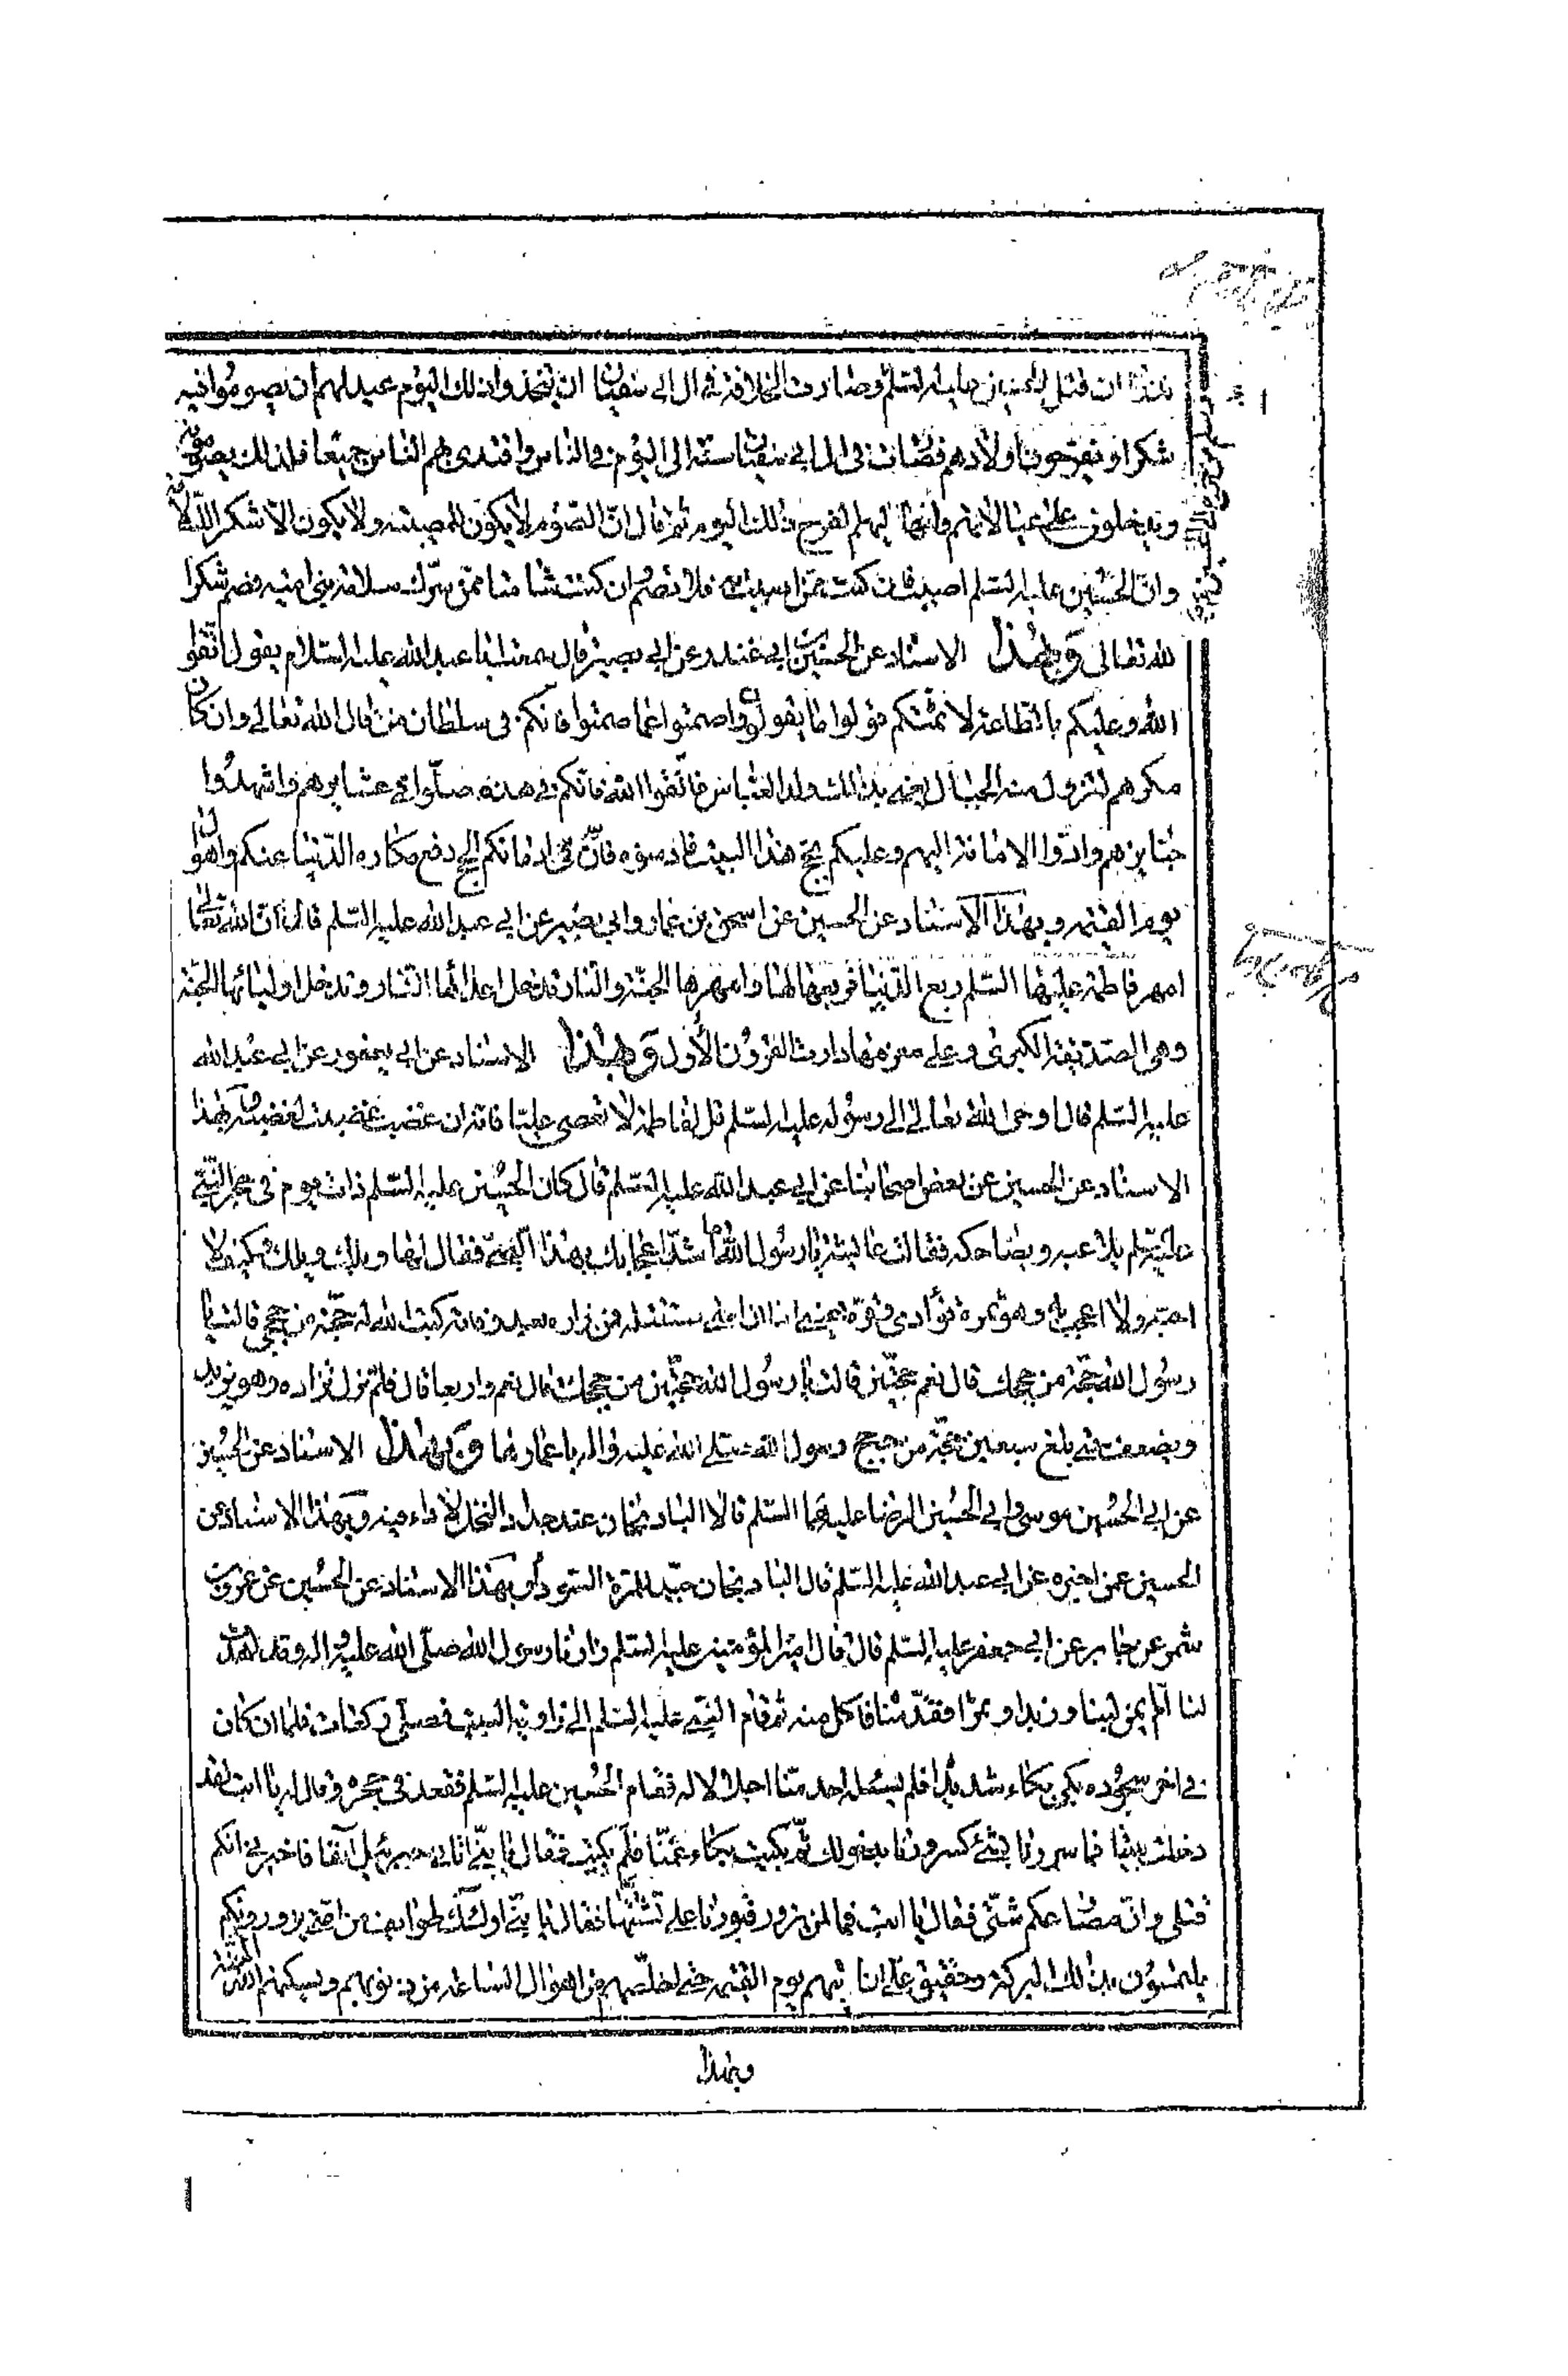 نذرا ان قتل الحسين عليه السلم وصارت الخلافة في ال ابي سفيان ان يتخذوا ذلك اليوم عيدا لهم ان يصوموا فيه
شكرا ويفرحون اولادهم فصارت في ال ابي سفيان سنة الى اليوم في الناس واقتدى بهم الناس جميعا فلذلك يصومونه
ويدخلون على عيالاتهم واهاليهم الفرح ذلك اليوم ثم قال ان الصوم لا يكون للمصيبة ولا يكون الا شكر اللسلامة
وان الحسين عليه السلم اصيب فان كنت ممن اصيب به فلا تصم وان كنت شامتا ممن سرك سلامة بني امية فصم شكرا
لله تعالى وَبهذا الاسناد عن الحسين بن ابي غندر عن ابي بصير قال سمعت ابا عبد الله عليه السلام يقول اتقوا
الله وعليكم بالطاعة لائمتكم قولوا ما يقولون واصمتوا عما صمتوا فانكم في سلطان من قال الله تعالى وان كان
مكرهم لتزول منه الجبال يعني بذلك ولد العباس فاتقوا الله فانكم في هدنة صلوا في عشايرهم واشهدوا
جنايزهم وادوا الامانة اليهم وعليكم بحج هذا البيت فادمنوه فان في ادمانكم الحج دفع مكاره الدنيا عنكم واهوال
يوم القيمة وبهذا الاسناد عن الحسين عن اسحق بن عمار وابي بصير عن ابي عبد الله عليه السلم قال ان الله تعالى
امهر فاطمة عليها السلم ربع الدنيا فربعها لها وامهرها الجنة والنار تدخل اعدائها النار وتدخل اوليائها الجنة
وهي الصديقة الكبرى وعلى معرفتها دارت القرون الأول وَبهذا الاسناد عن ابي يعفور عن ابي عبد الله
عليه السلم قال اوحى الله تعالى الى رسوله عليه السلم قل لفاطمة لا تعصي عليا فانه ان غضب غضبت لغضبه وبهذا
الاسناد عن الحسين عن بعض اصحابنا عن ابي عبد الله عليه السلم قال كان الحسين عليه السلم ذات يوم في حجر النبي
عليه السلم يلاعبه ويضاحكه فقالت عايشة يا رسول الله ما اشد اعجابك بهذا الصبي فقال لها ويلك ويلك وكيف لا
احبه ولا اعجب به وهو ثمرة فؤادي وقرة عيني اما ان امتي ستقتله فمن زاره بعد وفاته كتب الله له حجة من حججي قالت يا
رسول الله حجة من حججك قال نعم حجتين قالت يا رسول الله حجتين من حججك قال نعم واربعا قال فلم تزل تزاده وهو يزيد
ويضعف حتى بلغ سبعين حجة من حجج رسول الله صلى الله عليه واله باعمارها وَبهذا الاسناد عن الحسين
عن ابي الحسين موسى وابي الحسين الرضا عليهما السلم قالا الباذنجان عند جداد النخل لا داء فيه وبهذا الاسناد عن
الحسين عمن اخبره عن ابي عبد الله عليه السلم قال الباذنجان جيد للمرة السوداء وبهذا الاسناد عن الحسين عن عمرو بن
شمر عن جابر عن ابي جعفر عليه السلم قال قال امير المؤمنين عليه السلم زارنا رسول الله صلى الله عليه واله وقد اهدت
لنا ام ايمن لبنا وزبدا وتمرا فقدمنا فاكل منه ثم قام النبي عليه السلم الى زاوية البيت فصلى ركعات فلما ان كان
في اخر سجوده بكى بكاء شديدا فلم يسئله احد منا اجلالا له فقام الحسين عليه السلم فقعد في حجره وقال له يا ابت لقد
دخلت بيتنا فما سررنا بشئ كسرورنا بدخولك ثم بكيت بكاء غمنا فلم بكيت فقال يا بني اتاني جبرئيل آنفا فاخبرني انكم
قتلى وان مصارعكم شتى فقال يا ابت فما لمن يزور قبورنا على تشتتها فقال يا بني اولئك طوايف من امتي يزورونكم
يلتمسون بذلك البركة وحقيق علي ان اتيهم يوم القيمة حتى اخلصهم من اهوال الساعة من ذنوبهم ويسكنهم الله الجنة
وبهذا